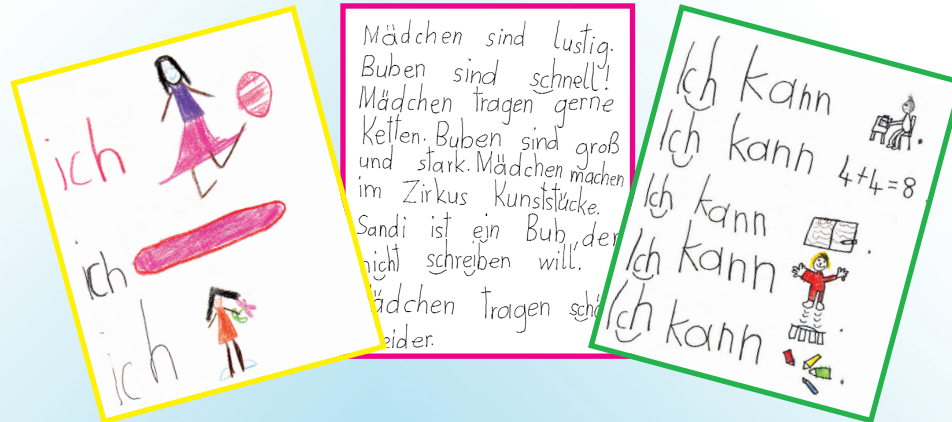 ich
ich
ich
Mädchen sind lustig.
Buben sind schnell!
Mädchen tragen gerne
Ketten. Buben sind groß
und stark. Mädchen machen
im Zirkus Kunststücke.
Sandi ist ein Bub, der
nicht schreiben will.
Mädchen tragen
Ich kann
Ich kann 4+4=8
Ich kann
Ich kann
Ich kann